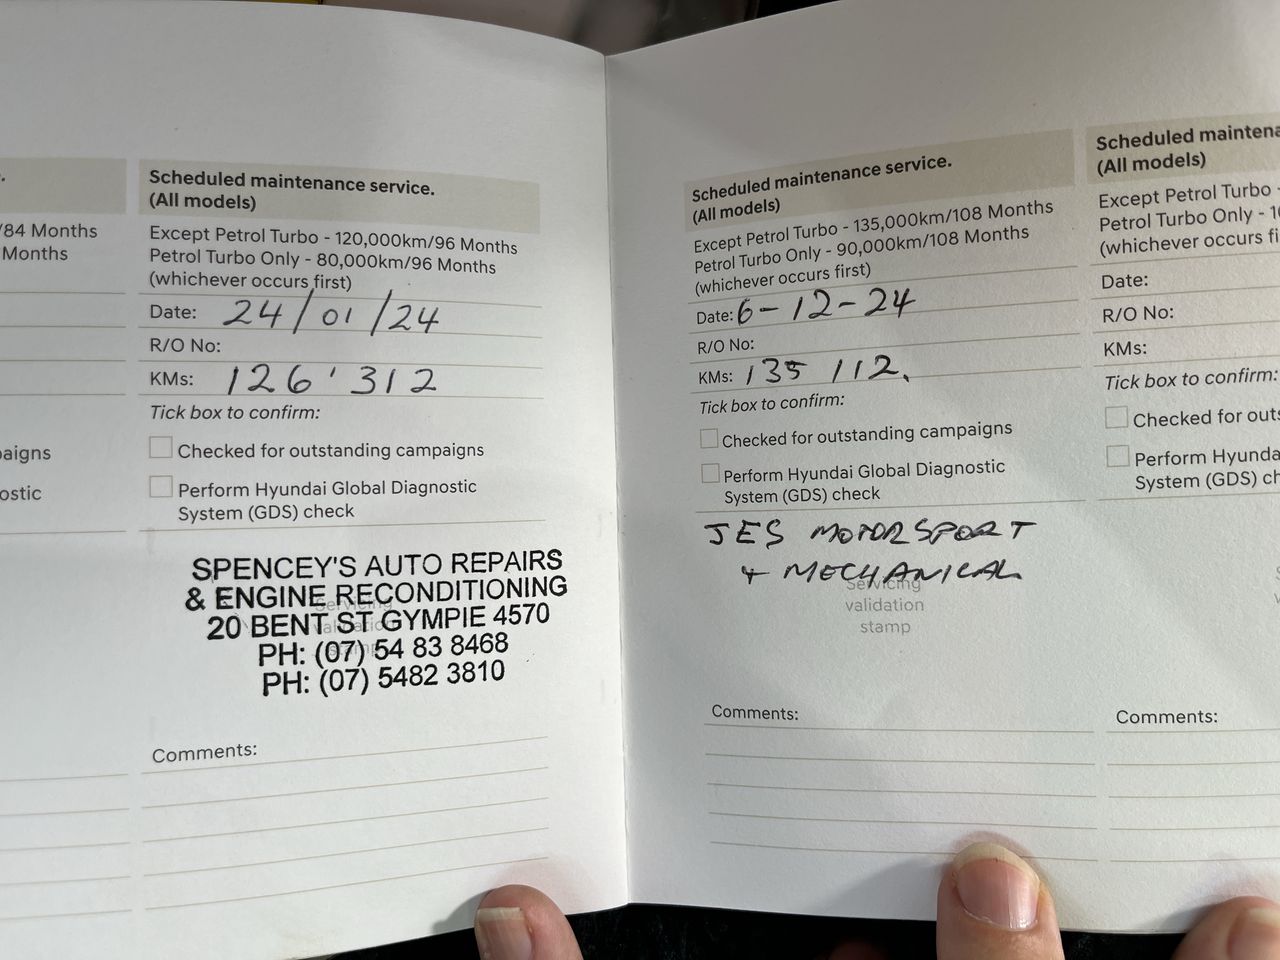 .
/84 Months
Months
paigns
ostic
Scheduled maintenance service.
(All models)
Except Petrol Turbo - 120,000km/96 Months
Petrol Turbo Only - 80,000km/96 Months
(whichever occurs first)
Date: 24/01/24
R/O No:
KMs: 126'312
Tick box to confirm:
Checked for outstanding campaigns
Perform Hyundai Global Diagnostic
System (GDS) check
SPENCEY'S AUTO REPAIRS
& ENGINE RECONDITIONING
20 BENT ST GYMPIE 4570
PH: (07) 54 83 8468
PH: (07) 5482 3810
Servicing
validation
stamp
Comments:
Scheduled maintenance service.
(All models)
Except Petrol Turbo - 135,000km/108 Months
Petrol Turbo Only - 90,000km/108 Months
(whichever occurs first)
Date: 6-12-24
R/O No:
KMs: 135 112.
Tick box to confirm:
Checked for outstanding campaigns
Perform Hyundai Global Diagnostic
System (GDS) check
JES MOTORSPORT
+ MECHANICAL
Servicing
validation
stamp
Comments:
Scheduled maintena
(All models)
Except Petrol Turbo -
Petrol Turbo Only - 10
(whichever occurs fi
Date:
R/O No:
KMs:
Tick box to confirm:
Checked for outs
Perform Hyunda
System (GDS) ch
Comments: